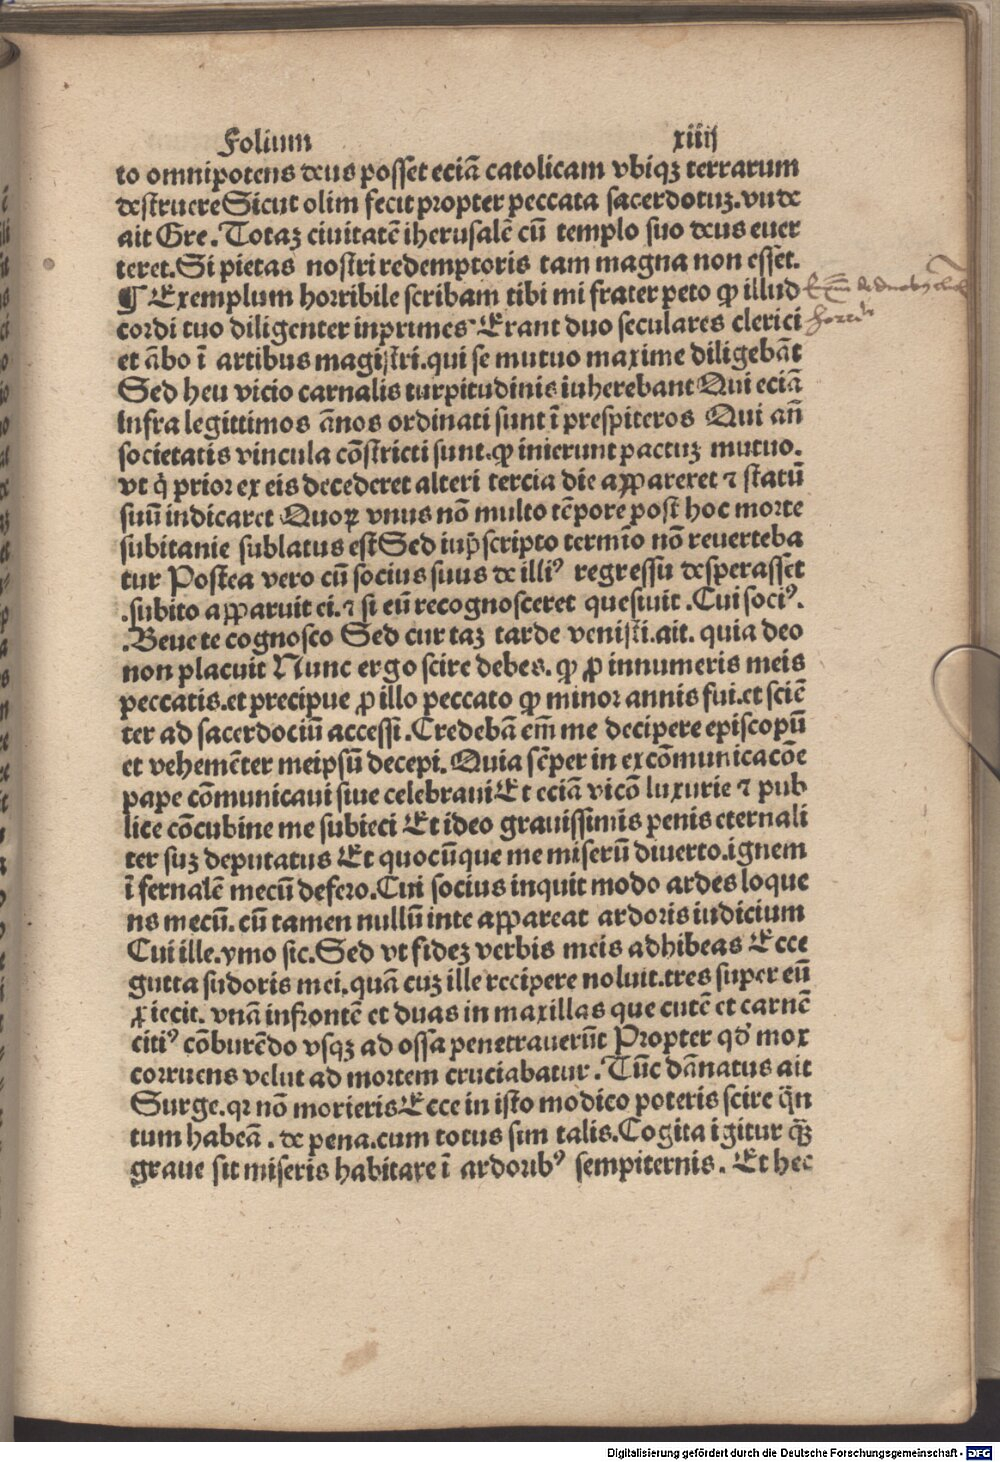 Folium xiiij
to omnipotens deus posset eciã catolicam vbiqꝫ terrarum
destruere Sicut olim fecit propter peccata sacerdotuꝫ. vnde
ait Gre. Totaꝫ ciuitatẽ iherusalẽ cũ templo suo deus euer
teret. Si pietas nostri redemptoris tam magna non esset.
¶ Exemplum horribile scribam tibi mi frater peto ꝙ illud
cordi tuo diligenter inprimes Erant duo seculares clerici
et ãbo ĩ artibus magistri. qui se mutuo maxime diligebãt
Sed heu vicio carnalis turpitudinis iuherebant Qui eciã
infra legittimos ãnos ordinati sunt ĩ prespiteros Qui añ
societatis vincula cõstricti sunt. ꝙ inierunt pactuꝫ mutuo.
vt q̇ prior ex eis decederet alteri tercia die aꝓpareret ⁊ statũ
suũ indicaret Quoꝝ vnus nõ multo tẽpore post hoc morte
subitanie sublatus est Sed iup̃scripto termĩo nõ reuerteba
tur Postea vero cũ socius suus de illiꝰ regressũ desperasset
. subito aꝓparuit ei. ⁊ si eũ recognosceret quesiuit. Cui sociꝰ.
. Beue te cognosco Sed cur taꝫ tarde venisti. ait. quia deo
non placuit Nunc ergo scire debes. ꝙ ꝓ innumeris meis
peccatis. et precipue ꝓ illo peccato ꝙ minor annis fui. et sciẽ
ter ad sacerdociũ accessi. Credebã em̃ me decipere episcopũ
et vehemẽter meipsũ decepi. Quia sẽper in excõmunicacõe
pape cõmunicaui siue celebraui Et eciã vicõ luxurie ⁊ pub
lice cõcubine me subieci Et ideo grauissimis penis eternali
ter suꝫ deputatus Et quocũque me miserũ diuerto. ignem
ĩ fernalẽ mecũ defero. Cui socius inquit modo ardes loque
ns mecũ. cũ tamen nullũ inte aꝓpareat ardoris iudicium
Cui ille. ymo sic. Sed vt fideꝫ verbis meis adhibeas Ecce
gutta sudoris mei. quã cuꝫ ille recipere noluit. tres super eũ
ꝓiecit. vnã infrontẽ et duas in maxillas que cutẽ et carnẽ
citiꝰ cõburẽdo vsqꝫ ad ossa penetrauerũt Propter qd̾ mox
corruens velut ad mortem cruciabatur. Tũc dãnatus ait
Surge. qꝛ nõ morieris Ecce in isto modico poteris scire q̃n
tum habeã. de pena. cum totus sim talis. Cogita igitur q̃ꝫ
graue sit miseris habitare ĩ ardoribꝰ sempiternis. Et hec
Digitalisierung gefördert durch die Deutsche Forschungsgemeinschaft - DFG